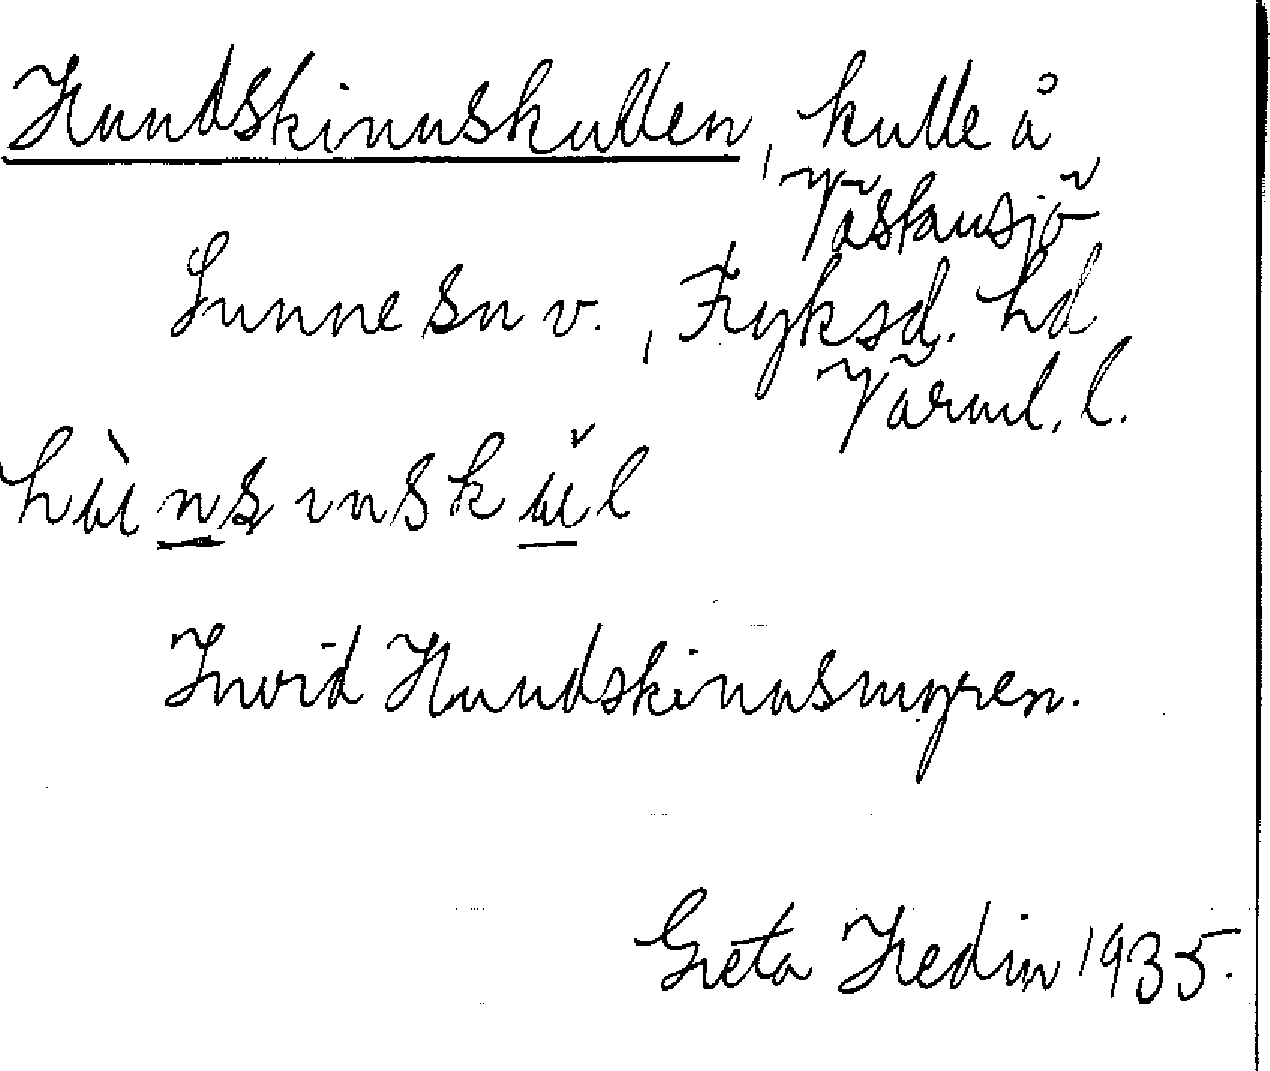 Hundskinnskullen, kulle å
Västansjö
Sunne sn v., Fryksd. hd
Värml. l.
hùnsınskŭl
Invid Hundskinnsmyren.
Greta Hedin 1935.